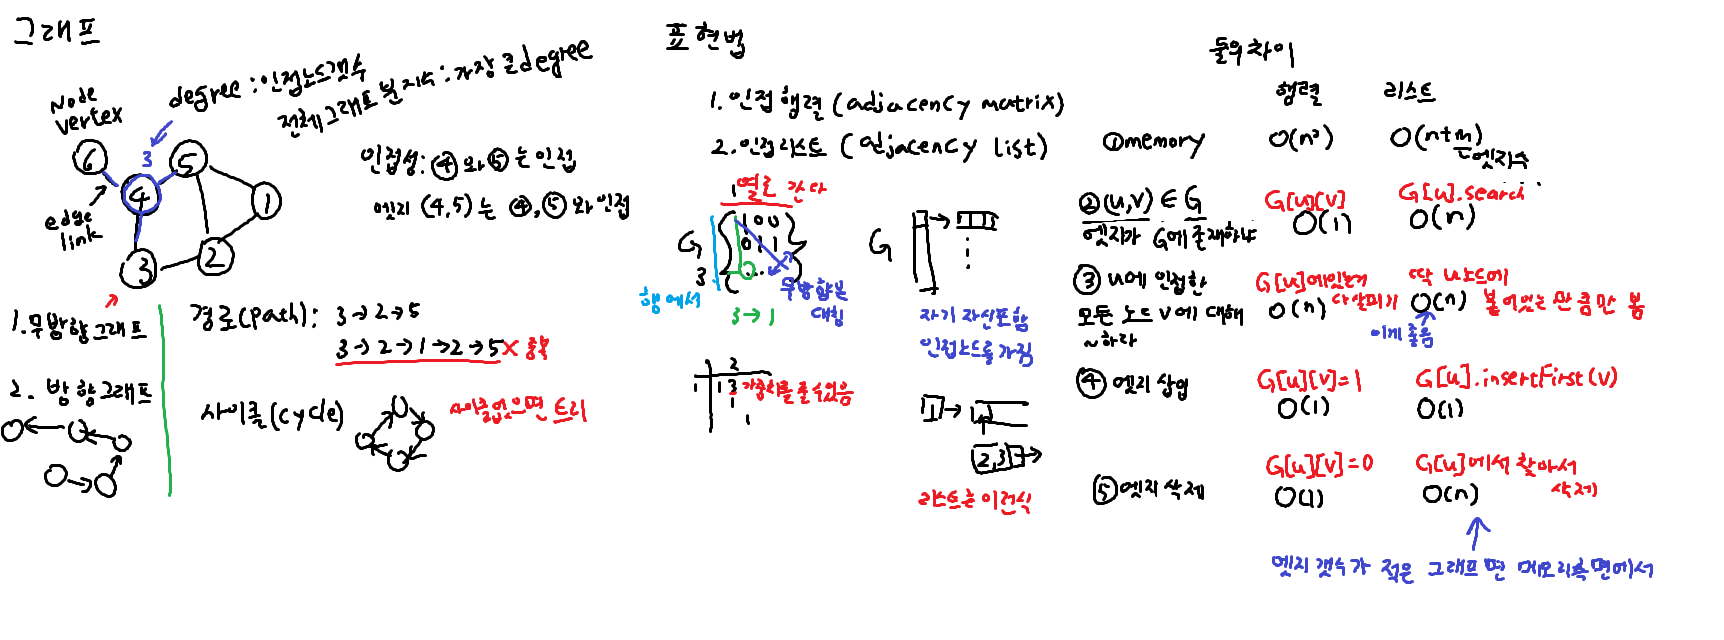 그래프
Node
vertex
degree : 인접노드갯수
전체그래프 분지수 : 가장 큰 degree
6
3
5
4
1
2
3
edge
link
인접성: ④와 ⑤는 인접
엣지 (4,5)는 ④,⑤와 인접
1. 무방향 그래프
2. 방향그래프
경로(path): 3→2→5
3→2→1→2→5 × 중복
사이클(cycle)
사이클없으면 트리
표현법
1. 인접행렬 (adjacency matrix)
2. 인접리스트 (adjacency list)
1 열로 간다
G
1 0 0
0 1 1
3
...
행에서
무방향은
대칭
3→1
2
1 1 3 가중치를 줄 수 있음
1
1
G
자기 자신포함
인접노드를 가짐
1
2,3
리스트는 이런식
둘의 차이
행렬 리스트
① memory O(n²) O(n+m)
엣지수
② (u,v) ∈ G G[u][v] G[u].search
엣지가 G에 존재하냐 O(1) O(n)
③ u에 인접한 G[u]에있는거 딱 u노드에
모든 노드 v에 대해 O(n) 다살피기 O(n) 붙어있는 만큼만 봄
~하라 이게 좋음
④ 엣지 삽입 G[u][v]=1 G[u].insertFirst(v)
O(1) O(1)
⑤ 엣지 삭제 G[u][v]=0 G[u]에서 찾아서
삭제
O(1) O(n)
엣지 갯수가 적은 그래프면 메모리측면에서